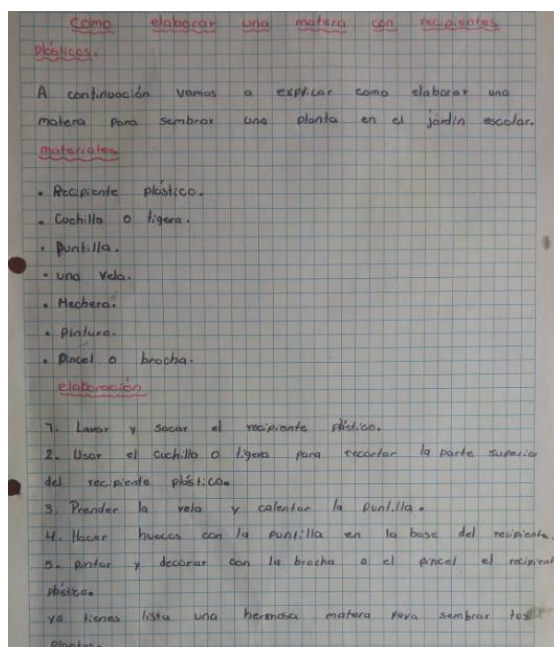 Como elaborar una matera con recipientes
plásticos.
A continuación vamos a explicar como elaborar una
matera para sembrar una planta en el jardin escolar.
materiales
• Recipiente plástico.
• Cuchillo o tigera.
• Puntilla.
• una vela.
• Mechera.
• Pintura.
• Pincel o brocha.
elaboración
1. Lavar y secar el recipiente plástico.
2. Usar el cuchillo o tigera para recortar la parte superior
del recipiente plástico.
3. Prender la vela y calentar la puntilla.
4. Hacer huecos con la puntilla en la base del recipiente.
5. pintar y decorar con la brocha o el pincel el recipient
plástico.
ya tienes lista una hermosa matera para sembrar tus
plantas.